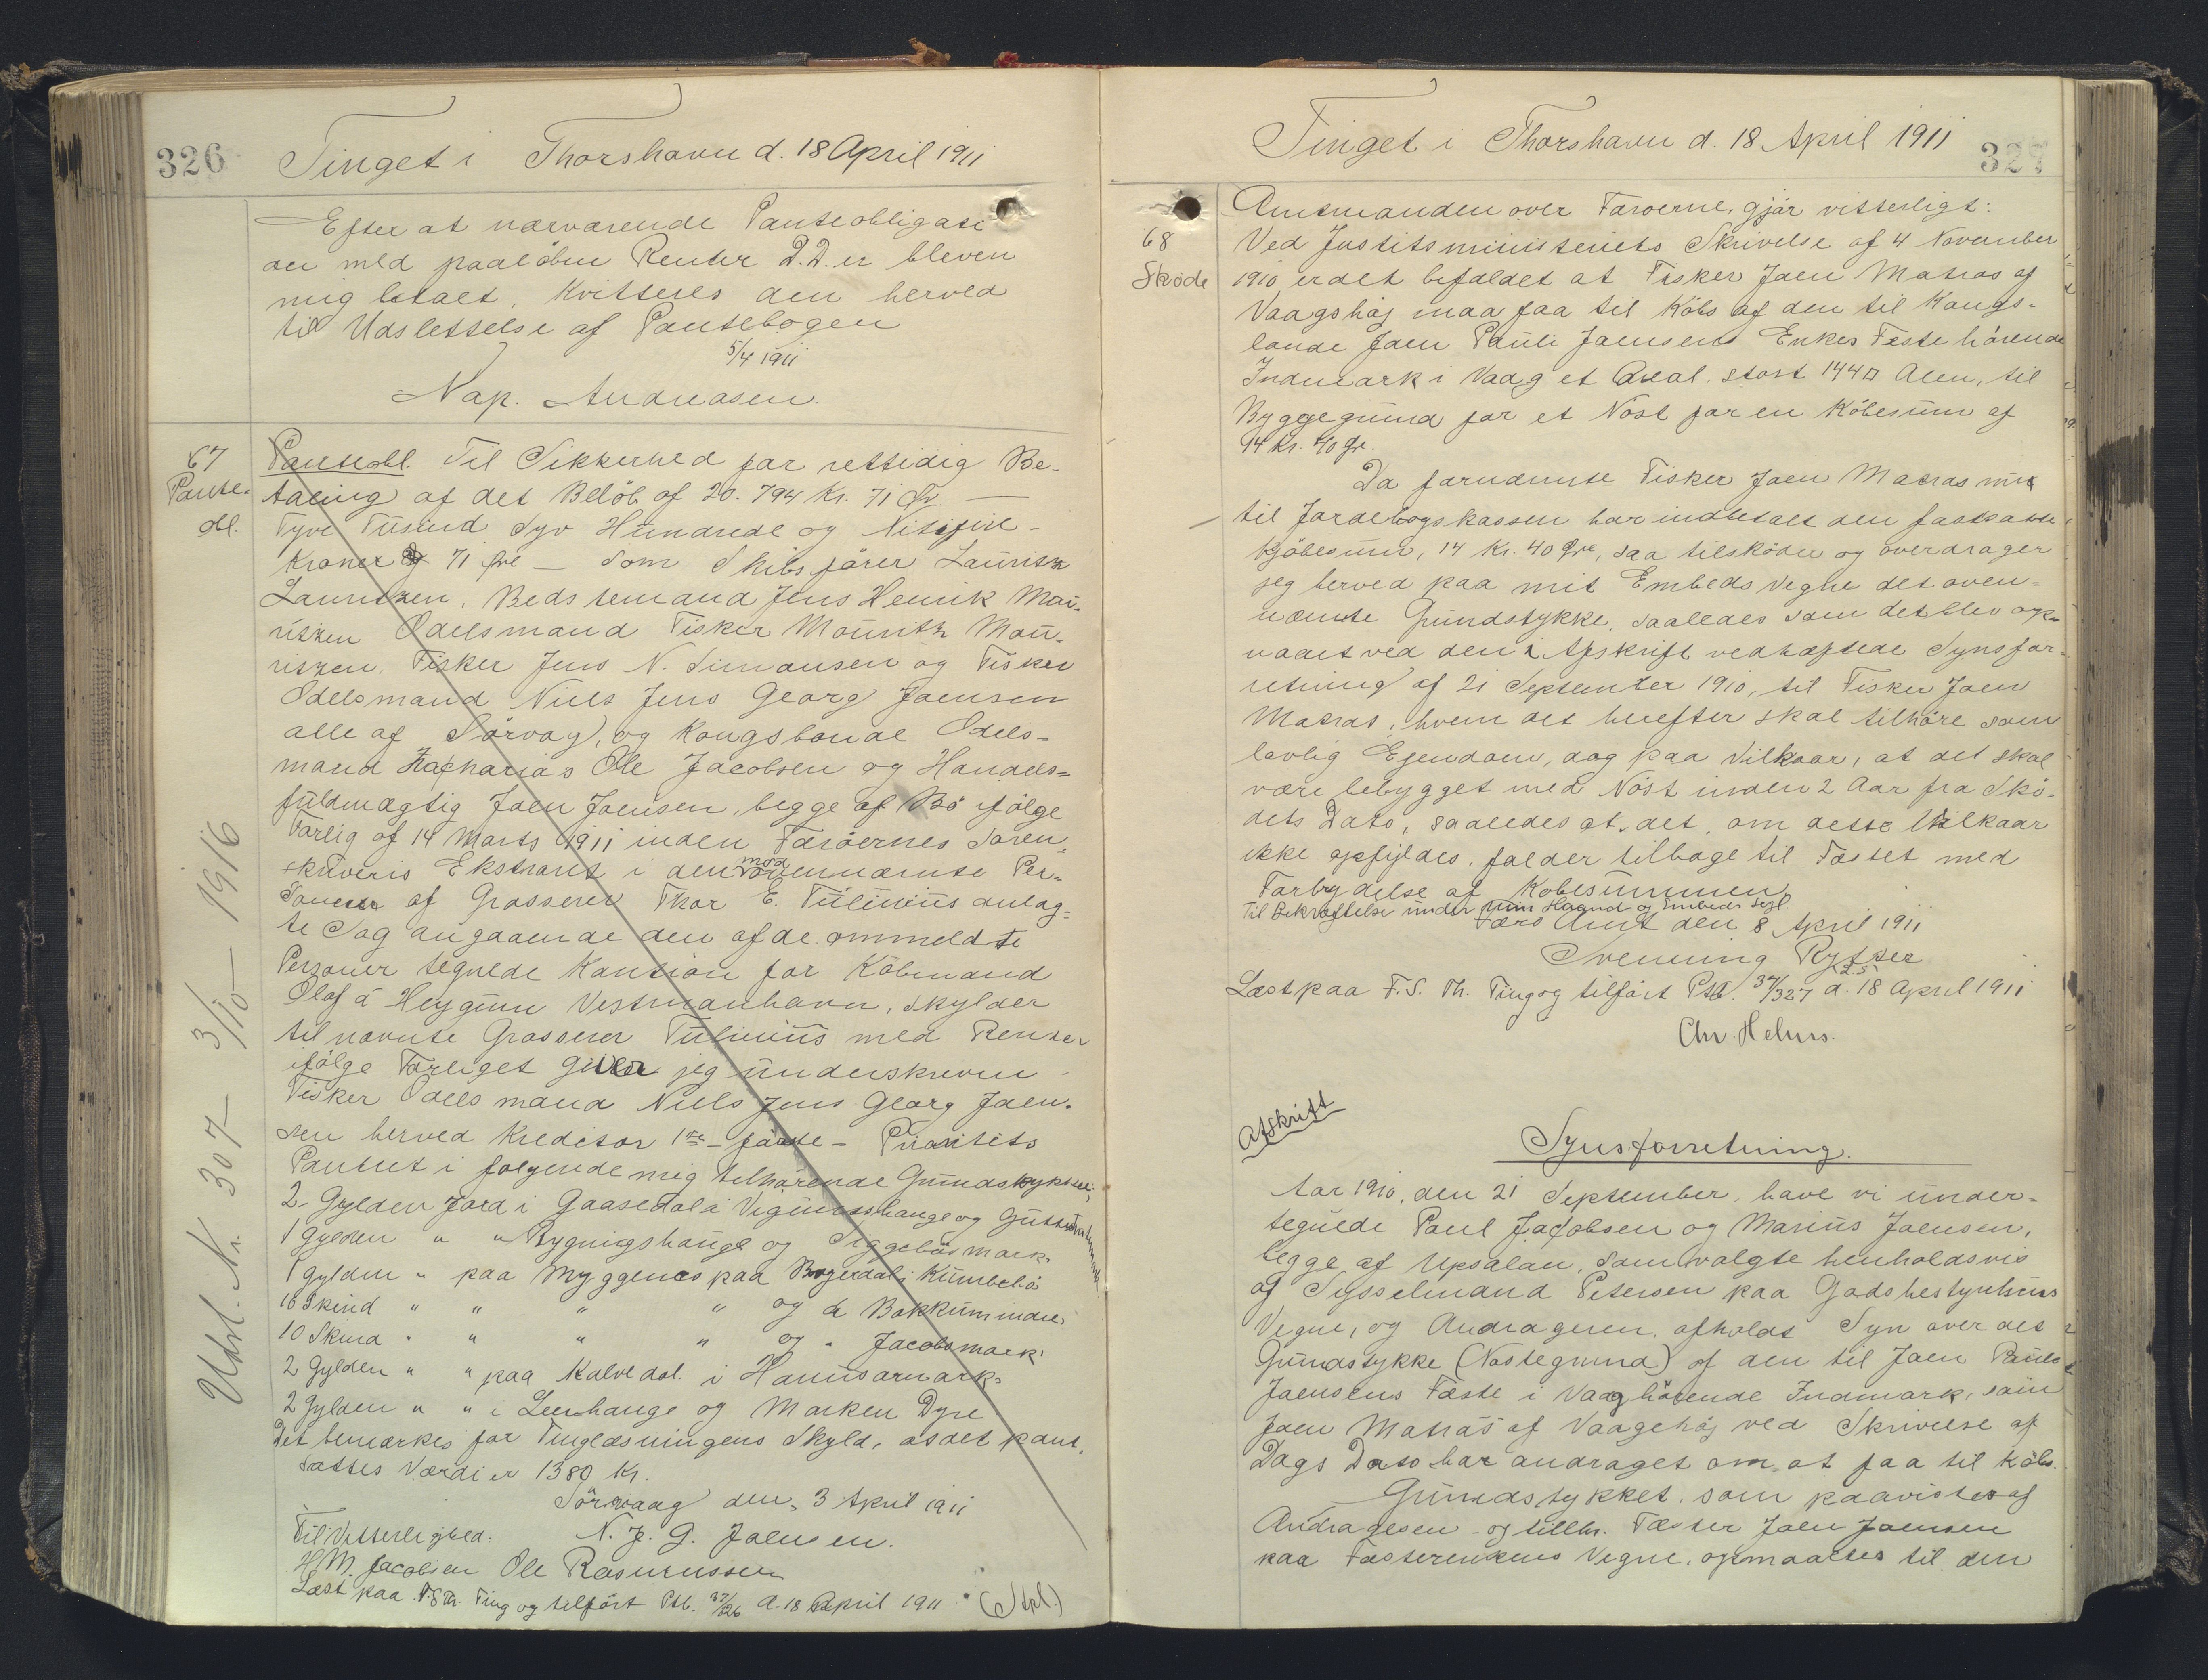 326
Tinget i Thorshavn d. 18 April 1911
Efter at nærværende Panteobligati
on med paaløbne Renter D.D. er bleven
mig betalt, kvitteres den herved
til Udslettelse af Pantebogen
5/4 1911
Nap. Andreasen.
67
Pante-
obl.
Panteobl. Til Sikkerhed for rettidig Be-
taling af det Beløb af 20.794 Kr. 71 Ør —
Tyve Tusind Syv Hundrede og Nitifire -
Kroner og 71 Øre — som Skibsfører Lauritz
Lauritzen, Bedstemand Jens Henrik Mou-
ritzen Odelsmand Fisker Mouritz Mou-
ritzen, Fisker Jens N. Simonsen og Fisker
Odelsmand Niels Jens Georg Joensen
alle af Sørvaag, og Kongsbonde Odels-
mand Zacharias Ole Jacobsen og Handels-
fuldmægtig Joen Joensen, begge af Bø ifølge
Forlig af 14 Marts 1911 inden Færøernes Soren-
skriveris Ekstraret i den mod ovennævnte Per-
soner af Grosserer Thor E. Tulinius anlag-
te Sag angaaende den af de ommeldte
Personer tegnede Kaution for Købmand
Olof á Heygum Vestmanhavn, skylder
til nævnte Grosserer Tulinius med Renter
ifølge Forliget giver jeg underskreven
Fisker Odelsmand Niels Jens Georg Joen-
sen herved Kreditor 1ste - første - Prioritets
Panteret i følgende mig tilhørende Grundstykker,
2 Gylden Jord i Gaasedal i Vigumshauge og
1 Gylden " " Bygnigshauge og Siggebøs mark.
1 Gylden " paa Myggenes paa Borgerdal i Kumbebø
16 Skind " " " " og i Bakkummdre,
10 Skind " " " " og " Jacobsmark.
2 Gylden " " paa Kalvedal i Hannusarmark.
2 Gylden " " i Leerhauge og Marken Dyre
Det bemærkes for Tinglæsningens Skyld, at det pant-
sattes Værdi er 1380 Kr.
Sørvaag den, 3 April 1911
Til Vitterlighed: N. J. G. Joensen.
H M. Jacobsen Ole Rasmussen
Læst paa F.S Th. Ting og tilført Ptb. 37/326 d. 18 April 1911. (Stpl.)
Udsl. Nr. 307 - 3/10 - 1916
327
Tinget i Thorshavn d. 18 April 1911
68
Skøde
Amtmanden over Færøerne, gjør vitterligt:
Ved Justitsministeriets Skrivelse af 4 November
1910, er det befaldet at Fisker Joen Matras af
Vaagshøj maa faa til Købs af den til Kongs-
lande Joen Pauli Joensens Enkes Fæste hørende
Indmark i Vaag et Areal, stort 144 □ Alen, til
Byggegrund for et Nøst for en Købesum af
14 Kr. 40 Ør.
Da fornævnte Fisker Joen Matras nu
til Jordebogskassen har indbetalt den fastsatte
Kjøbesum, 14 Kr. 40 Øre, saa tilskøder og overdrager
jeg herved paa mit Embeds Vegne det oven-
nævnte Grundstykke, saaledes som det blev op-
maalt ved den i Afskrift vedhæftede Synsfor-
retning af 21 September 1910, til Fisker Joen
Matras, hvem det herefter skal tilhøre som
lovlig Ejendom, dog paa Vilkaar, at det skal
være bebygget med Nøst inden 2 Aar fra Skø-
dets Dato, saaledes at det, om dette Vilkaar
ikke opfyldes, falder tilbage til Fæstet med
Forbrydelse af Købesummen.
Til Bekræftelse under min Haand og Embeds Segl.
Færø Amt den 8 April 1911
Svenning Rytter
(L.S.)
Læst paa F.S. Th. Ting og tilført Ptb. 37/327 d. 18 April 1911
Chr. Helms.
Afskrift
Synsforretning.
Aar 1910, den 21 September, have vi under-
tegnede Paul Jacobsen og Marius Joensen,
begge af Upsalan, som valgte henholdsvis
af Sysselmand Petersen paa Godsbestyrelsens
Vegne, og Andrageren, afholdt Syn over det
Grundstykke (Nøstegrund) af den til Joen Paulo
Joensens Fæste i Vaag hørende Indmark, som
Joen Matras af Vaagehøj ved Skrivelse af
Dags Dato har andraget om at faa til Købs.
Grundstykket, som paavistes af
Andrageren og tillbr. Fæster Joen Joensen
paa Fæsterenkens Vegne, opmaaltes til den